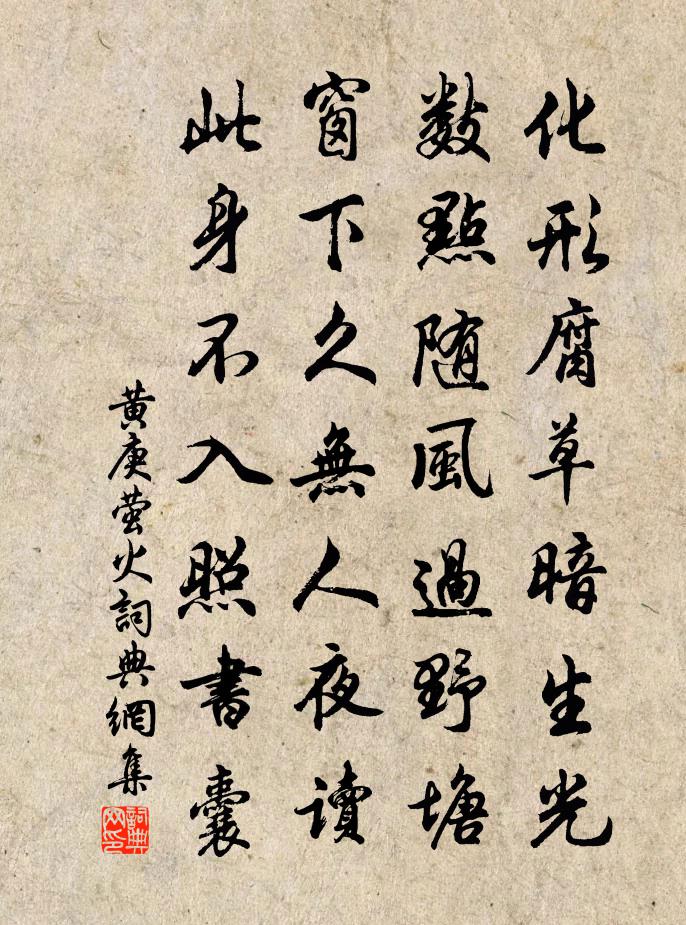 化形腐草暗生光
數點随風過野塘
窗下久無人夜讀
此身不入照書囊
黄庚萤火詞典網集
詞典網印